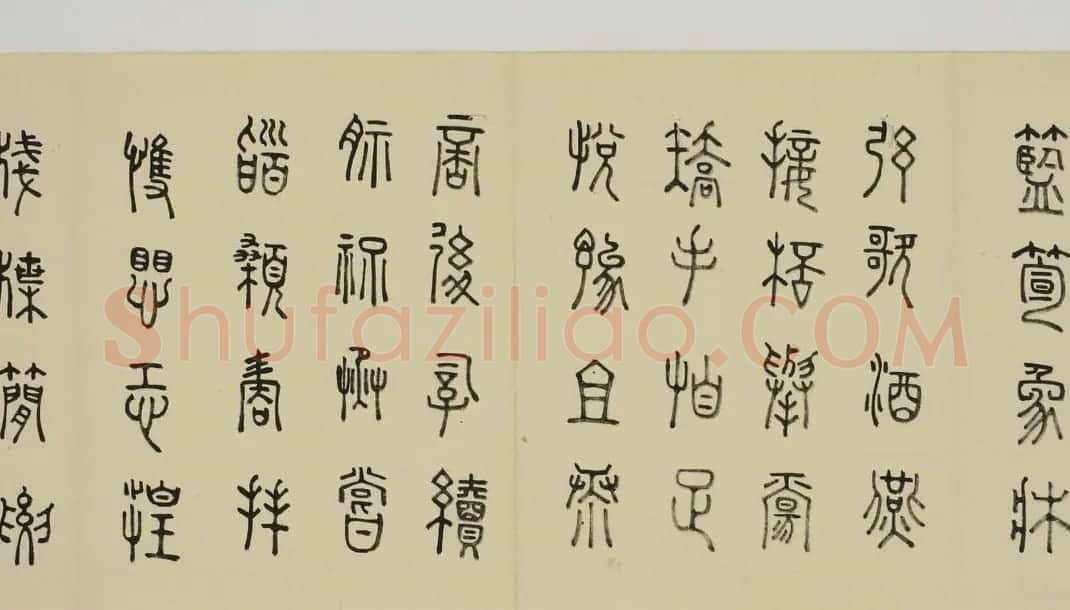 籃筍象牀
弦歌酒燕
接桮舉觴
矯手足
悅豫且康
啇後嗣續
祭祀烝嘗
䭫顙再拜
愳恐惶
牋牒簡要
Shufaziliao.COM